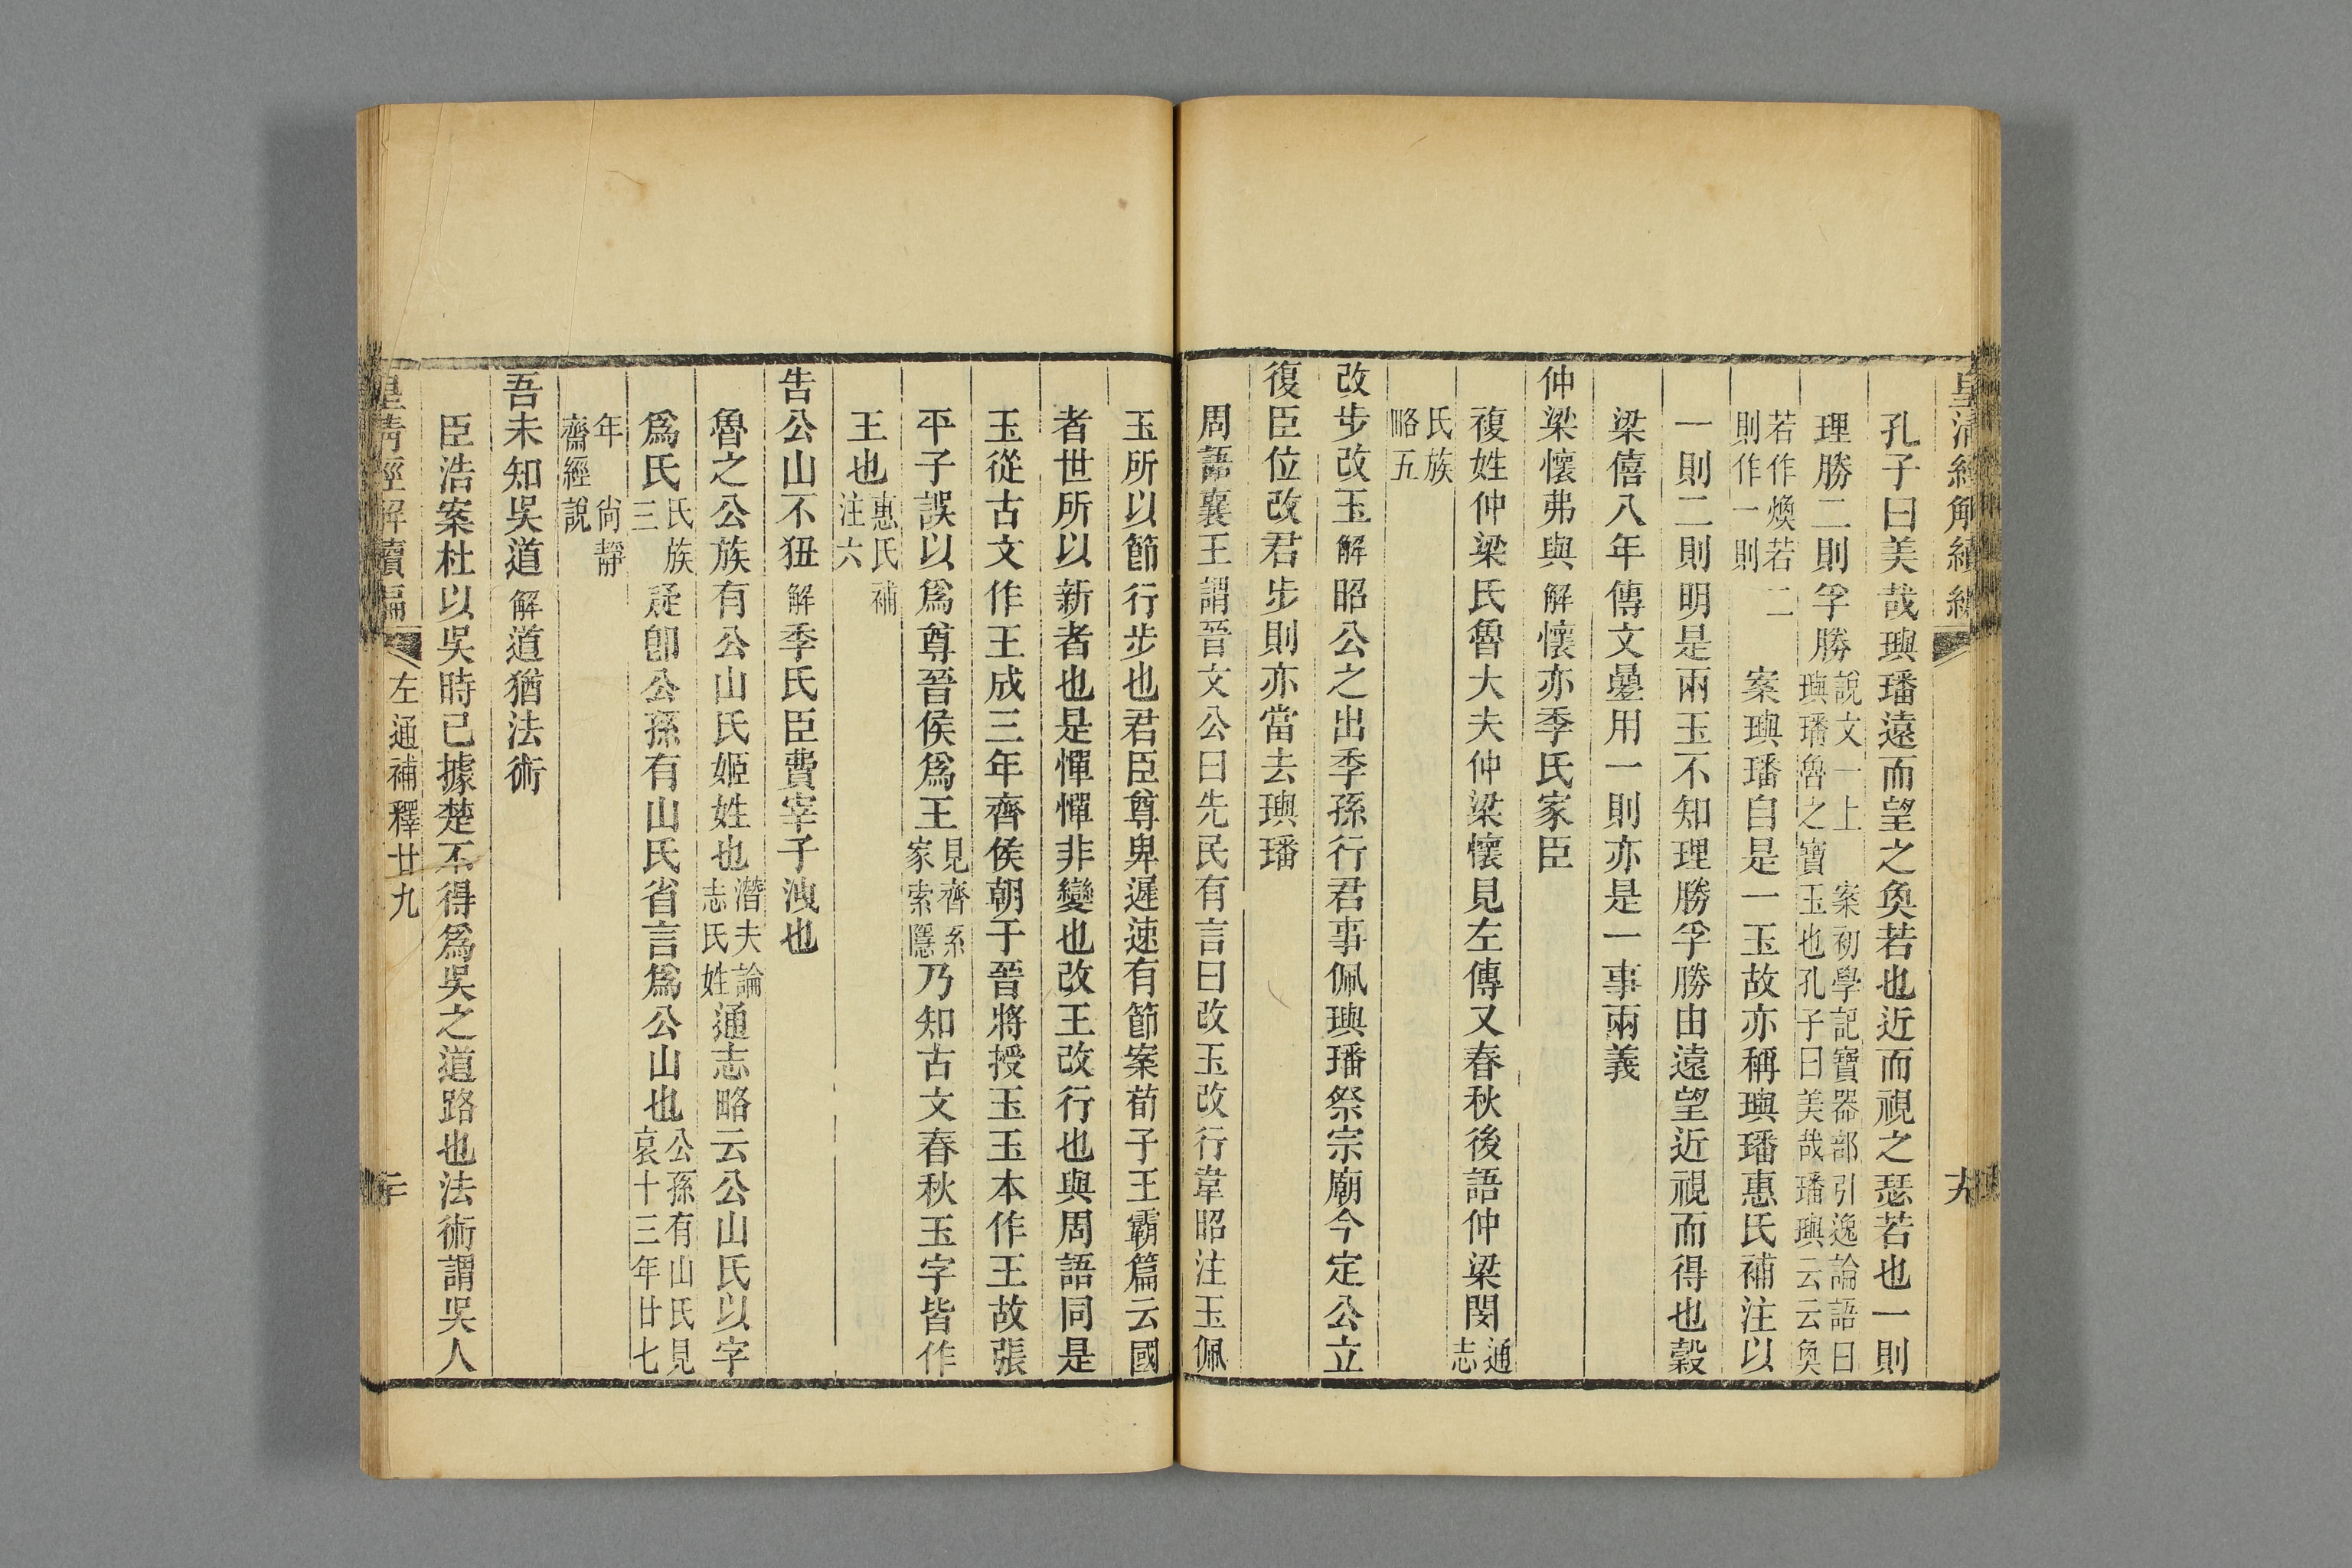 皇清經解續編
十九
孔子曰美哉璵璠遠而望之奐若也近而視之瑟若也一則
理勝二則孚勝說文一上 案初學記寶器部引逸論語曰璵璠魯之寶玉也孔子曰美哉璠璵云云奐
若作煥若二則作一則 案璵璠自是一玉故亦稱璵璠惠氏補注以
一則二則明是兩玉不知理勝孚勝由遠望近視而得也穀
梁僖八年傳文曡用一則亦是一事兩義
仲梁懷弗與解懷亦季氏家臣
複姓仲梁氏魯大夫仲梁懷見左傳又春秋後語仲梁閔通志
氏族略五
改步改玉解昭公之出季孫行君事佩璵璠祭宗廟今定公立
復臣位改君步則亦當去璵璠
周語襄王謂晉文公曰先民有言曰改玉改行韋昭注玉佩
玉所以節行步也君臣尊卑遲速有節案荀子王霸篇云國
者世所以新者也是憚憚非變也改王改行也與周語同是
玉從古文作王成三年齊侯朝于晉將授玉玉本作王故張
平子誤以爲尊晉侯爲王見齊系家索隱乃知古文春秋玉字皆作
王也惠氏補注六
告公山不狃解季氏臣費宰子洩也
魯之公族有公山氏姬姓也潛夫論志氏姓通志略云公山氏以字
爲氏氏族三疑卽公孫有山氏省言爲公山也公孫有山氏見哀十三年廿七
年 尙靜齋經說
吾未知吳道解道猶法術
臣浩案杜以吳時已據楚不得爲吳之道路也法術謂吳人
皇清經解續編
左通補釋廿九
二十